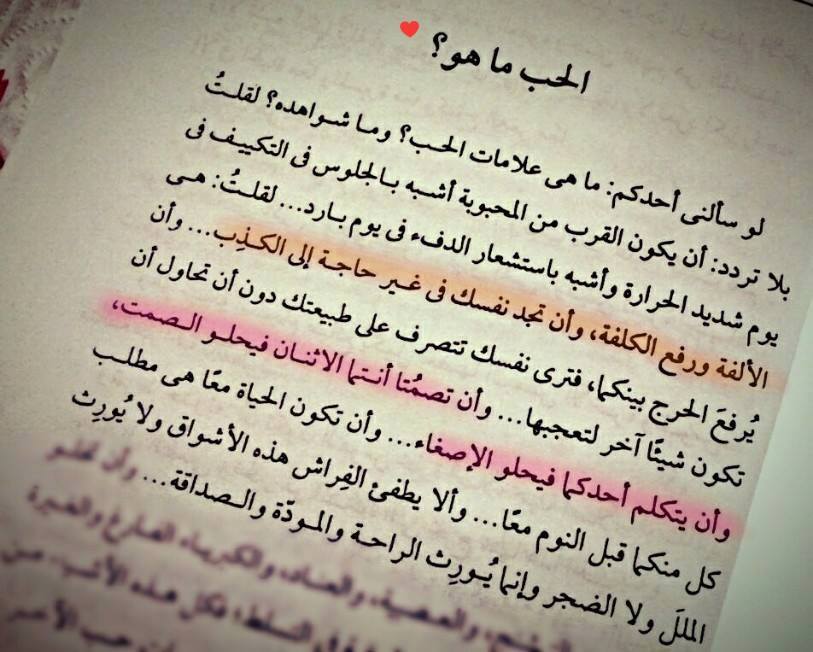 الحب ما هو؟
لو سألنى أحدكم: ما هى علامات الحب؟ وما شواهده؟ لقلتُ
بلا تردد: أن يكون القرب من المحبوبة أشبه بالجلوس فى التكييف فى
يوم شديد الحرارة وأشبه باستشعار الدفء فى يوم بارد... لقلتُ: هى
الألفة ورفع الكلفة، وأن تجد نفسك فى غير حاجة إلى الكذِب... وأن
يُرفعَ الحرج بينكما، فترى نفسك تتصرف على طبيعتك دون أن تحاول أن
تكون شيئًا آخر لتعجبها... وأن تصمُتا أنتما الاثنان فيحلو الصمت،
وأن يتكلم أحدكما فيحلو الإصغاء... وأن تكون الحياة معًا هى مطلب
كل منكما قبل النوم معًا... وألا يطفئ الفِراش هذه الأشواق ولا يُورِث
المللَ ولا الضجر وإنما يُورِث الراحة والمودّة والصداقة...
وأن تخلو
والعصبية، والعناد، والكبرياء الفارغ والغيرة